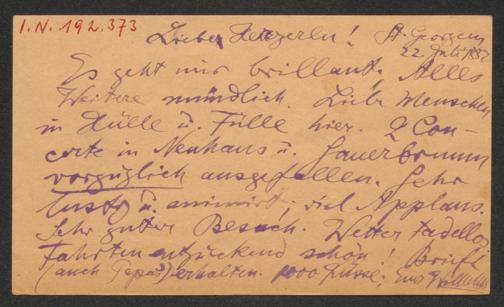 I.N. 192.373
Lieber Herzerln! St. Georgen
22. Juli
Es geht mir brillant, Alles
Weitere mündlich. Liebe Menschen
in Hülle u. Fülle hier. 2 Con-
certe in Neuhaus u. Sauerbrunn
vorzüglich ausgefallen. Sehr
lustig u. animirt, viel Applaus.
Sehr guter Besuch. Wetter tadellos.
Fahrten entzückend schön! Brief
(auch Papas) erhalten. 1000 Küsse,